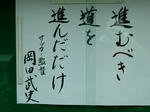 進むべき
道を
進んだだけ
サッカー監督
岡田武史